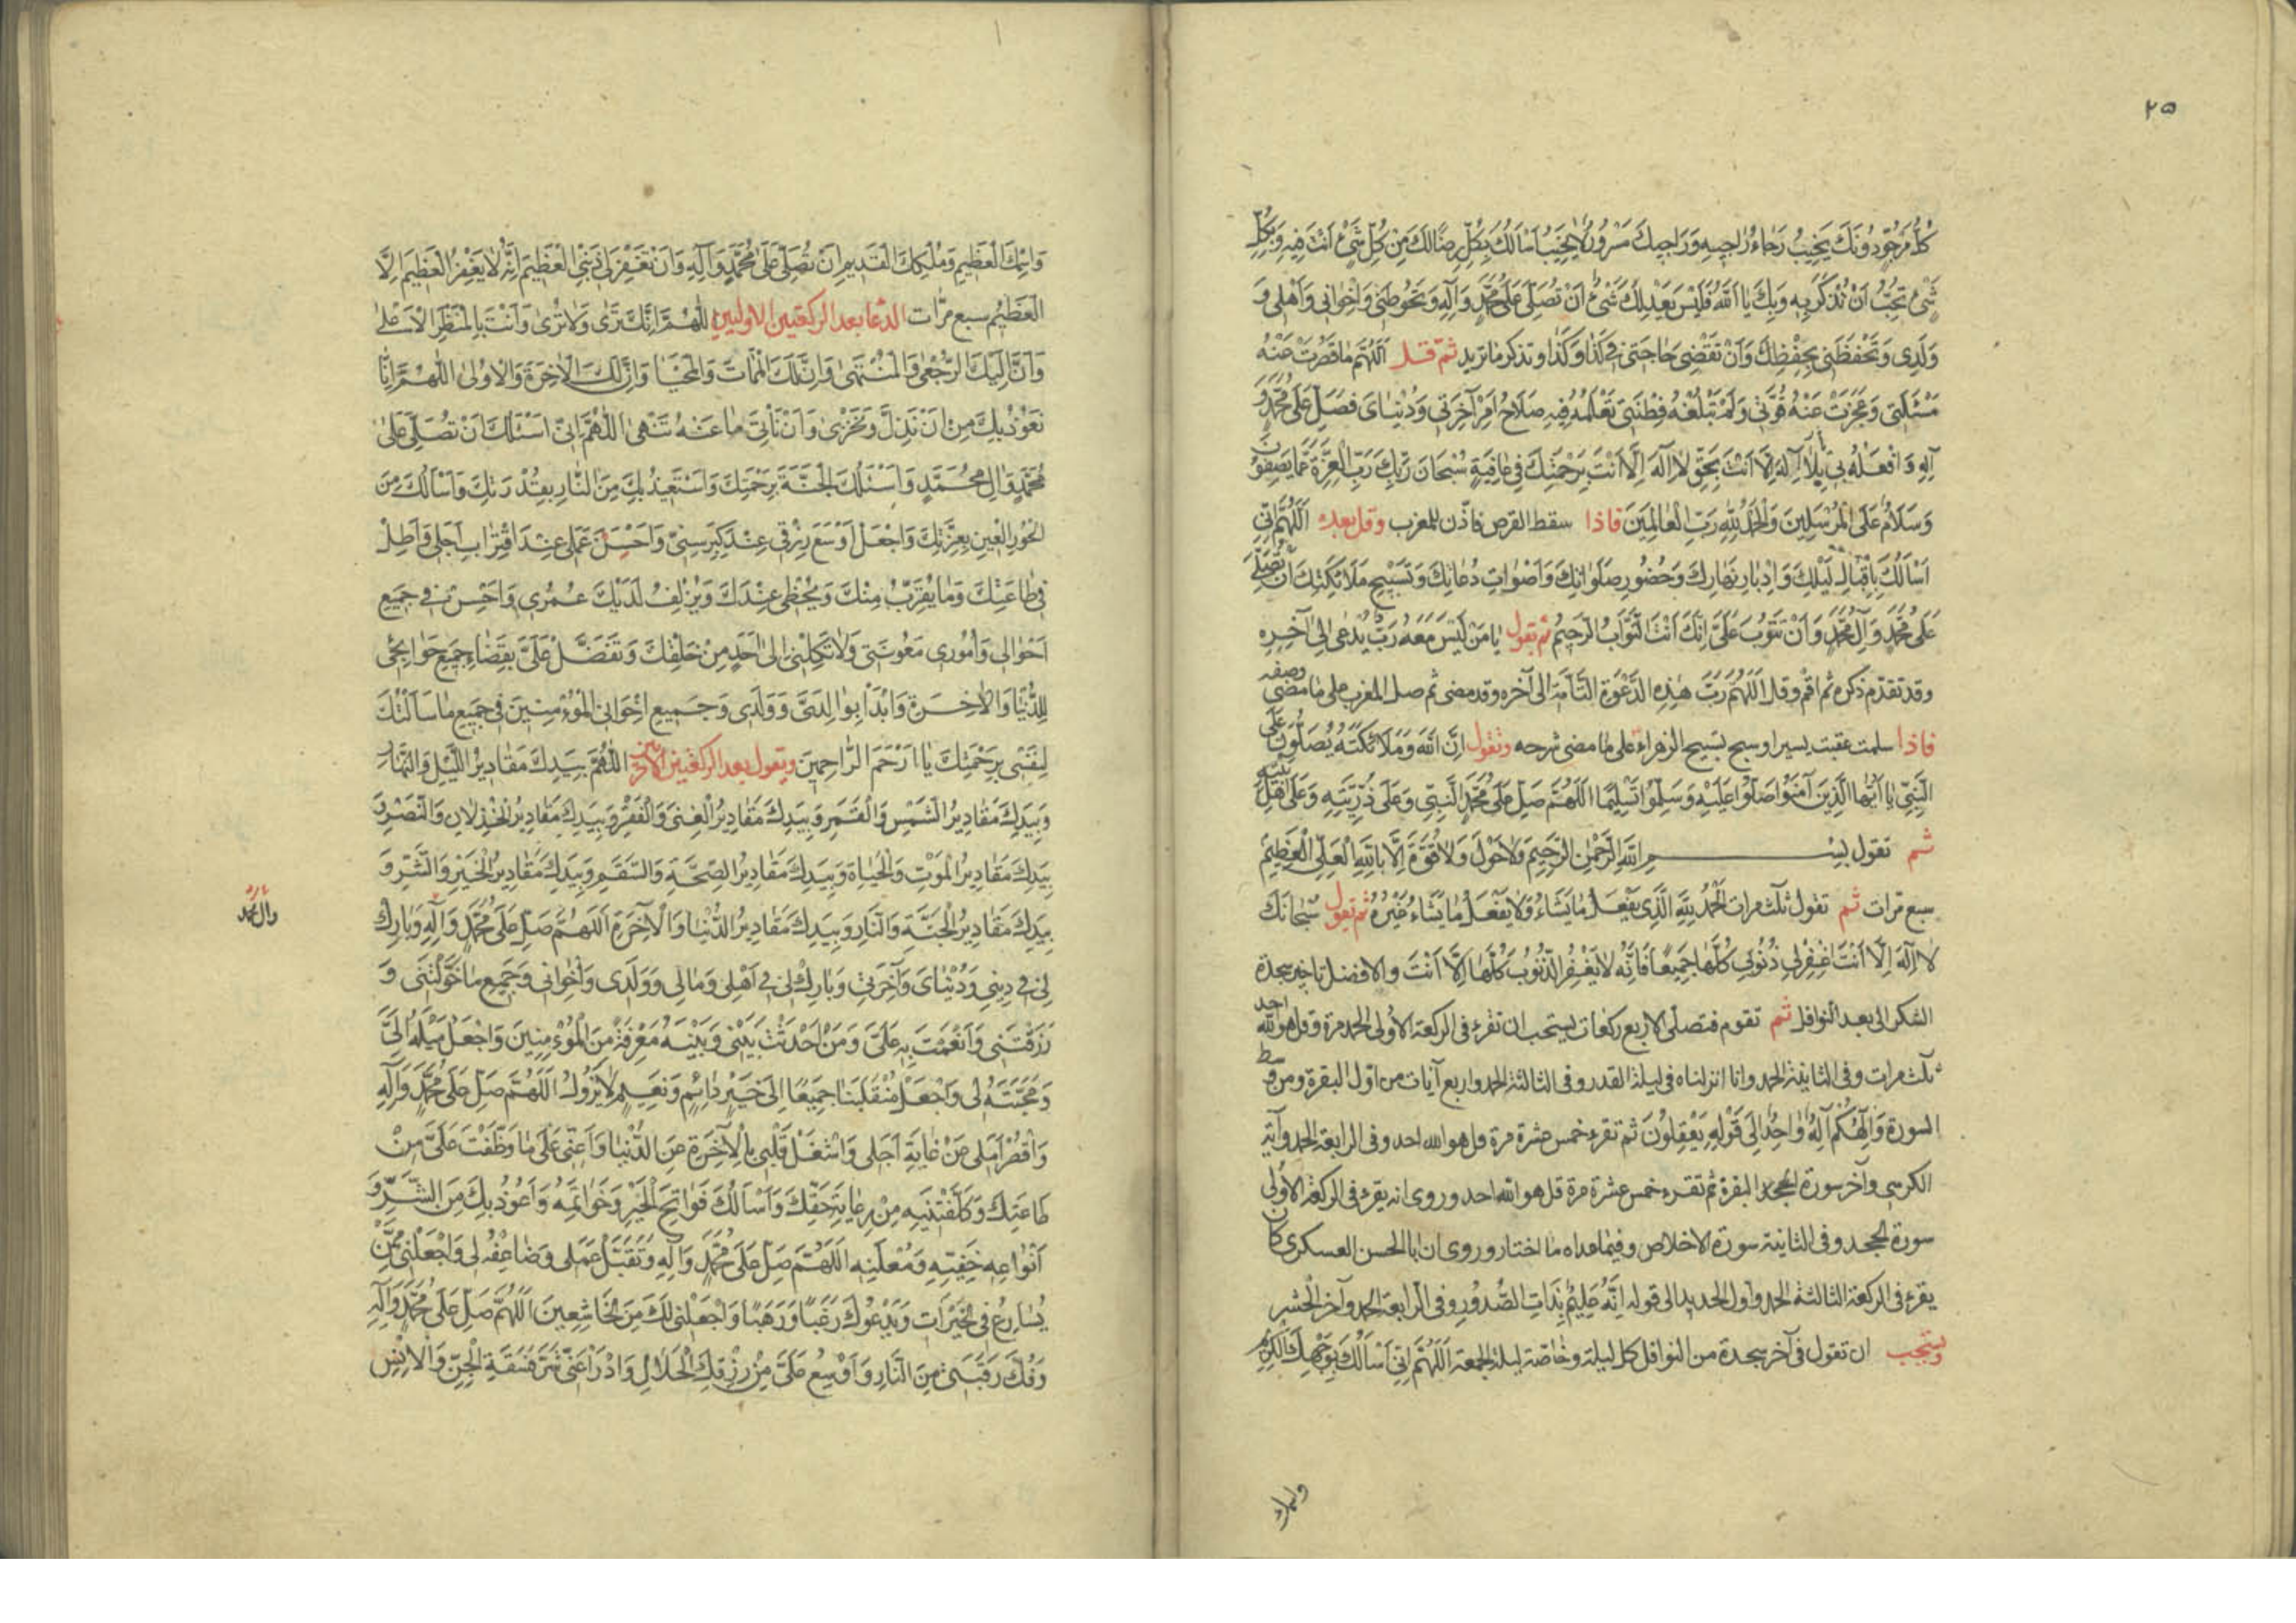 ٢٥
كُلُّ مَرْجُوٍّ دُونَكَ يَخِيبُ رَجَاءُ رَاجِيهِ وَرَاجِيكَ مَسْرُورٌ لَا يَخِيبُ اَسْاَلُكَ بِكُلِّ رِضًا لَكَ مِنْ كُلِّ شَيْءٍ اَنْتَ فِيهِ وَبِكُلِّ
شَيْءٍ تُحِبُّ اَنْ تُذْكَرَ بِهِ وَبِكَ يَا اَللّٰهُ فَلَيْسَ يَعْدِلُكَ شَيْءٌ اَنْ تُصَلِّيَ عَلَى مُحَمَّدٍ وَآلِهِ وَتَحُوطَنِي وَاِخْوَانِي وَاَهْلِي وَ
وَلَدِي وَتَحْفَظَنِي بِحِفْظِكَ وَاَنْ تَقْضِيَ حَاجَتِي فِي كَذَا وَكَذَا وتذكر ما تريد ثم قل اَللّٰهُمَّ مَا قَصُرَتْ عَنْهُ
مَسْئَلَتِي وَعَجَزَتْ عَنْهُ قُوَّتِي وَلَمْ تَبْلُغْهُ فِطْنَتِي تَعْلَمُ فِيهِ صَلَاحَ اَمْرِ آخِرَتِي وَدُنْيَايَ فَصَلِّ عَلَى مُحَمَّدٍ وَ
آلِهِ وَافْعَلْهُ بِي يَا لَا اِلٰهَ اِلَّا اَنْتَ بِحَقِّ لَا اِلٰهَ اِلَّا اَنْتَ بِرَحْمَتِكَ فِي عَافِيَةٍ سُبْحَانَ رَبِّكَ رَبِّ الْعِزَّةِ عَمَّا يَصِفُونَ
وَسَلَامٌ عَلَى الْمُرْسَلِينَ وَالْحَمْدُ لِلّٰهِ رَبِّ الْعَالَمِينَ فاذا سقط القرص فاذّن للمغرب وقل بعده اَللّٰهُمَّ اِنِّي
اَسْاَلُكَ بِاِقْبَالِ لَيْلِكَ وَاِدْبَارِ نَهَارِكَ وَحُضُورِ صَلَوَاتِكَ وَاَصْوَاتِ دُعَاتِكَ وَتَسْبِيحِ مَلَائِكَتِكَ اَنْ تُصَلِّيَ
عَلَى مُحَمَّدٍ وَآلِ مُحَمَّدٍ وَاَنْ تَتُوبَ عَلَيَّ اِنَّكَ اَنْتَ التَّوَّابُ الرَّحِيمُ ثم تقول يَا مَنْ لَيْسَ مَعَهُ رَبٌّ يُدْعَى اِلَى آخِرِهِ
وقد تقدم ذكره ثم اقم وقل اَللّٰهُمَّ رَبَّ هٰذِهِ الدَّعْوَةِ التَّامَّةِ الى آخره وقد مضى ثم صل المغرب على ما مضى وصفه
فاذا سلمت عقبت يسيرا وسبح تسبيح الزهراء على ما مضى شرحه وتقول اِنَّ اللّٰهَ وَمَلَائِكَتَهُ يُصَلُّونَ عَلَى
النَّبِيِّ يَا اَيُّهَا الَّذِينَ آمَنُوا صَلُّوا عَلَيْهِ وَسَلِّمُوا تَسْلِيمًا اَللّٰهُمَّ صَلِّ عَلَى مُحَمَّدٍ النَّبِيِّ وَعَلَى ذُرِّيَّتِهِ وَعَلَى اَهْلِ بَيْتِهِ
ثم تقول بِسْمِ اللّٰهِ الرَّحْمٰنِ الرَّحِيمِ وَلَا حَوْلَ وَلَا قُوَّةَ اِلَّا بِاللّٰهِ الْعَلِيِّ الْعَظِيمِ
سبع مرات ثم تقول ثلث مرات اَلْحَمْدُ لِلّٰهِ الَّذِي يَفْعَلُ مَا يَشَاءُ وَلَا يَفْعَلُ مَا يَشَاءُ غَيْرُهُ ثم تقول سُبْحَانَكَ
لَا اِلٰهَ اِلَّا اَنْتَ اغْفِرْ لِي ذُنُوبِي كُلَّهَا جَمِيعًا فَاِنَّهُ لَا يَغْفِرُ الذُّنُوبَ كُلَّهَا اِلَّا اَنْتَ والافضل تاخير سجدة
الشكر الى بعد النوافل ثم تقوم فتصلى الاربع ركعات يستحب ان تقرء فى الركعة الأولى الحمد مرة وقل هو الله احد
ثلث مرات وفى الثانية الحمد وانا انزلناه فى ليلة القدر وفى الثالثة الحمد واربع آيات من اول البقرة ومن وسط
السورة وَاِلٰهُكُمْ اِلٰهٌ وَاحِدٌ اِلَى قَوْلِهِ يَعْقِلُونَ ثم تقرء خمس عشرة مرة قل هو الله احد وفى الرابعة الحمد وآية
الكرسى وآخر سورة البقرة ثم تقرء خمس عشرة مرة قل هو الله احد وروى انه يقرء فى الركعة الأولى
سورة الجحد وفى الثانية سورة الاخلاص وفيما عداه ما اختار وروى ان ابا الحسن العسكرى كان
يقرء فى الركعة الثالثة الحمد واول الحديد الى قوله اِنَّهُ عَلِيمٌ بِذَاتِ الصُّدُورِ وفى الرابعة الحمد وآخر الحشر
ويستحب ان تقول فى آخر سجدة من النوافل كل ليلة وخاصة ليلة الجمعة اَللّٰهُمَّ اِنِّي اَسْاَلُكَ بِوَجْهِكَ الْكَرِيمِ
واسمك
وَاسْمِكَ الْعَظِيمِ وَمُلْكِكَ الْقَدِيمِ اَنْ تُصَلِّيَ عَلَى مُحَمَّدٍ وَآلِهِ وَاَنْ تَغْفِرَ لِي ذَنْبِيَ الْعَظِيمَ اِنَّهُ لَا يَغْفِرُ الْعَظِيمَ اِلَّا
الْعَظِيمُ سبع مرّات الدعا بعد الركعتين الاوليين اَللّٰهُمَّ اِنَّكَ تَرَى وَلَا تُرَى وَاَنْتَ بِالْمَنْظَرِ الْاَعْلَى
وَاَنَّ اِلَيْكَ الرُّجْعَى وَالْمُنْتَهَى وَاِنَّ لَكَ الْمَمَاتَ وَالْمَحْيَا وَاِنَّ لَكَ الْآخِرَةَ وَالْاُولَى اَللّٰهُمَّ اِنَّا
نَعُوذُ بِكَ مِنْ اَنْ نَذِلَّ وَنَخْزَى وَاَنْ نَأْتِيَ مَا عَنْهُ تَنْهَى اَللّٰهُمَّ اِنِّي اَسْئَلُكَ اَنْ تُصَلِّيَ عَلَى
مُحَمَّدٍ وَآلِ مُحَمَّدٍ وَاَسْئَلُكَ الْجَنَّةَ بِرَحْمَتِكَ وَاَسْتَعِيذُ بِكَ مِنَ النَّارِ بِقُدْرَتِكَ وَاَسْاَلُكَ مِنَ
الْحُورِ الْعِينِ بِعِزَّتِكَ وَاجْعَلْ اَوْسَعَ رِزْقِي عِنْدَ كِبَرِ سِنِّي وَاَحْسَنَ عَمَلِي عِنْدَ اقْتِرَابِ اَجَلِي وَاَطِلْ
فِي طَاعَتِكَ وَمَا يُقَرِّبُ مِنْكَ وَيُحْظِي عِنْدَكَ وَيُزْلِفُ لَدَيْكَ عُمُرِي وَاَحْسِنْ فِي جَمِيعِ
اَحْوَالِي وَاُمُورِي مَعُونَتِي وَلَا تَكِلْنِي اِلَى اَحَدٍ مِنْ خَلْقِكَ وَتَفَضَّلْ عَلَيَّ بِقَضَاءِ جَمِيعِ حَوَائِجِي
لِلدُّنْيَا وَالْآخِرَةِ وَابْدَأْ بِوَالِدَيَّ وَوَلَدِي وَجَمِيعِ اِخْوَانِيَ الْمُؤْمِنِينَ فِي جَمِيعِ مَا سَاَلْتُكَ
لِنَفْسِي بِرَحْمَتِكَ يَا اَرْحَمَ الرَّاحِمِينَ ويقول بعد الركعتين الاخرتين اَللّٰهُمَّ بِيَدِكَ مَقَادِيرُ اللَّيْلِ وَالنَّهَارِ
وَبِيَدِكَ مَقَادِيرُ الشَّمْسِ وَالْقَمَرِ وَبِيَدِكَ مَقَادِيرُ الْغِنَى وَالْفَقْرِ وَبِيَدِكَ مَقَادِيرُ الْخِذْلَانِ وَالنَّصْرِ وَ
بِيَدِكَ مَقَادِيرُ الْمَوْتِ وَالْحَيَاةِ وَبِيَدِكَ مَقَادِيرُ الصِّحَّةِ وَالسَّقَمِ وَبِيَدِكَ مَقَادِيرُ الْخَيْرِ وَالشَّرِّ وَ
بِيَدِكَ مَقَادِيرُ الْجَنَّةِ وَالنَّارِ وَبِيَدِكَ مَقَادِيرُ الدُّنْيَا وَالْآخِرَةِ اَللّٰهُمَّ صَلِّ عَلَى مُحَمَّدٍ وَآلِهِ وَبَارِكْ
وآل محمد
لِي فِي دِينِي وَدُنْيَايَ وَآخِرَتِي وَبَارِكْ لِي فِي اَهْلِي وَمَالِي وَوَلَدِي وَاِخْوَانِي وَجَمِيعِ مَا خَوَّلْتَنِي وَ
رَزَقْتَنِي وَاَنْعَمْتَ بِهِ عَلَيَّ وَمَنْ اَحْدَثْتَ بَيْنِي وَبَيْنَهُ مَعْرِفَةً مِنَ الْمُؤْمِنِينَ وَاجْعَلْ مَيْلَهُ اِلَيَّ
وَمَحَبَّتَهُ لِي وَاجْعَلْ مُنْقَلَبَنَا جَمِيعًا اِلَى خَيْرٍ دَائِمٍ وَنَعِيمٍ لَا يَزُولُ اَللّٰهُمَّ صَلِّ عَلَى مُحَمَّدٍ وَآلِهِ
وَاَقْصِرْ اَمَلِي عَنْ غَايَةِ اَجَلِي وَاشْغَلْ قَلْبِي بِالْآخِرَةِ عَنِ الدُّنْيَا وَاَعِنِّي عَلَى مَا وَظَّفْتَ عَلَيَّ مِنْ
طَاعَتِكَ وَكَلَّفْتَنِيهِ مِنْ رِعَايَةِ حَقِّكَ وَاَسْاَلُكَ فَوَاتِحَ الْخَيْرِ وَخَوَاتِمَهُ وَاَعُوذُ بِكَ مِنَ الشَّرِّ وَ
اَنْوَاعِهِ خَفِيِّهِ وَمُعْلَنِهِ اَللّٰهُمَّ صَلِّ عَلَى مُحَمَّدٍ وَآلِهِ وَتَقَبَّلْ عَمَلِي وَضَاعِفْهُ لِي وَاجْعَلْنِي مِمَّنْ
يُسَارِعُ فِي الْخَيْرَاتِ وَيَدْعُوكَ رَغَبًا وَرَهَبًا وَاجْعَلْنِي لَكَ مِنَ الْخَاشِعِينَ اَللّٰهُمَّ صَلِّ عَلَى مُحَمَّدٍ وَآلِهِ
وَفُكَّ رَقَبَتِي مِنَ النَّارِ وَاَوْسِعْ عَلَيَّ مِنْ رِزْقِكَ الْحَلَالِ وَادْرَأْ عَنِّي شَرَّ فَسَقَةِ الْجِنِّ وَالْاِنْسِ